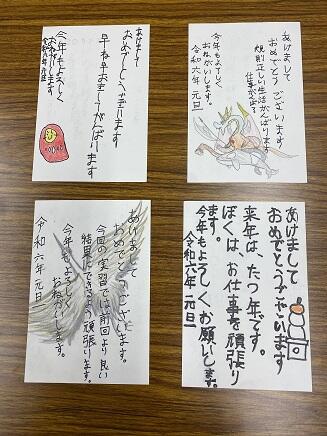 あけまして
おめでとうございます
早ね早おきしてがんばります
今年もよろしく
おねがいします
令和六年 元旦
あけまして
おめでとうございます
規則正しい生活がんばります
今年もよろしく
おねがいします。
令和六年 元旦
あけまして
おめでとうございます。
今回の実習では前回より良い
結果にできるよう頑張ります。
今年もよろしく
おねがいします。
令和六年 元日
あけまして
おめでとうございます
来年は、たつ年です。
ぼくは、お仕事を頑張り
ます。
今年もよろしくお願いします。
令和六年 元日